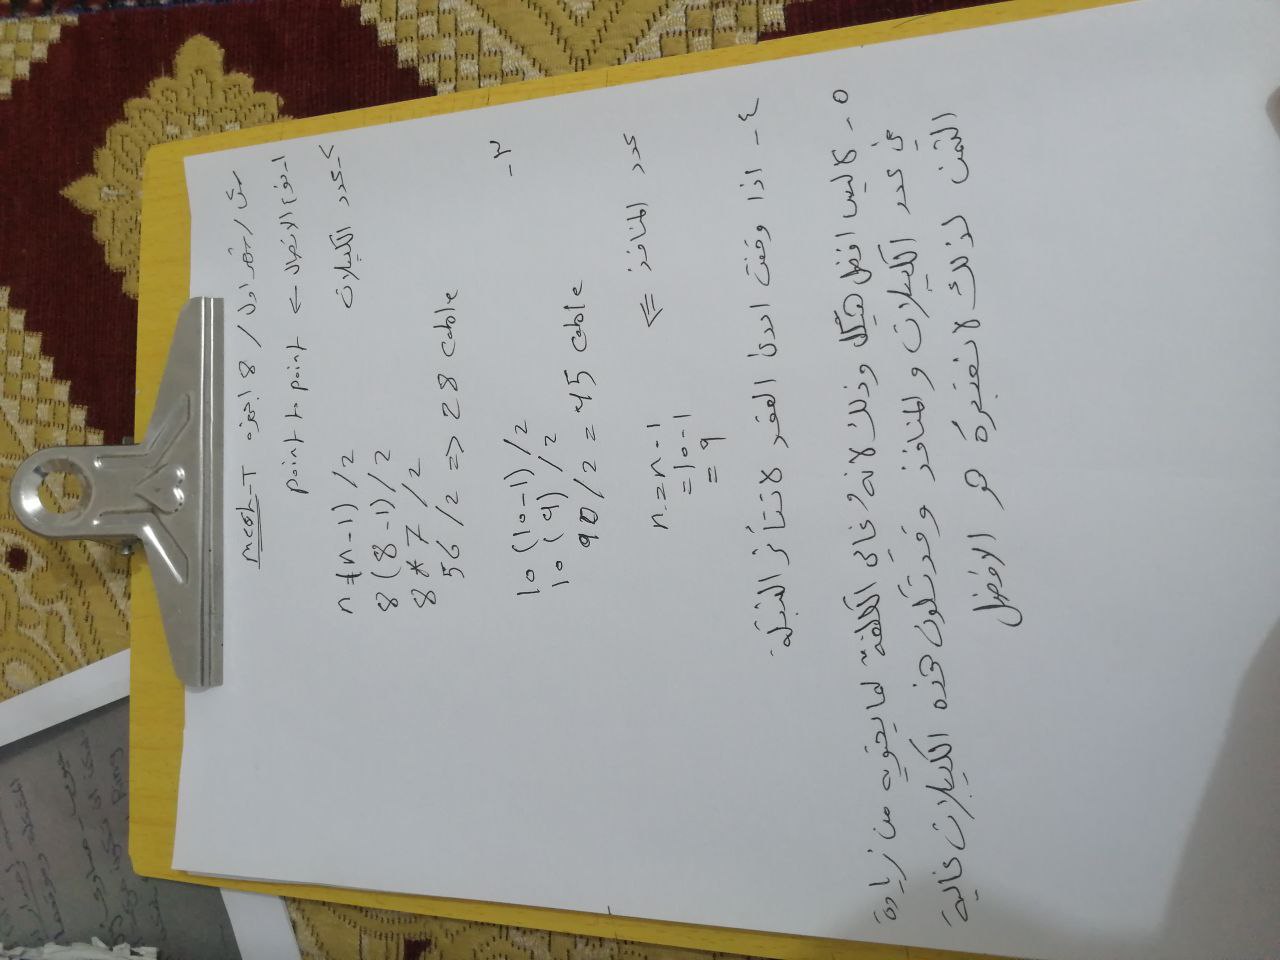 المشكلة وموقعها
عيوب - مساوئ
Ring
س / شهر اول / 8 اجهزه mesh-T
١- نوع الاتصال ← point to point
٢- عدد الكيبلات n*(n-1)/2
8(8-1)/2
8*7/2
56/2 => 28 cable
٣-
10(10-1)/2
10(9)/2
90/2 = 45 cable
عدد المنافذ <= n=n-1
=10-1
= 9
٤- اذا وقفت احدى العقد لا تتأثر الشبكة
٥- لا ليس افضل هيكل وذلك لانهُ غالي الكلفة لما يحتويه من زيادة
في عدد الكيبلات والمنافذ وقد تكون هذه الكيبلات غالية
الثمن لذلك لا نعتبرهُ هو الافضل